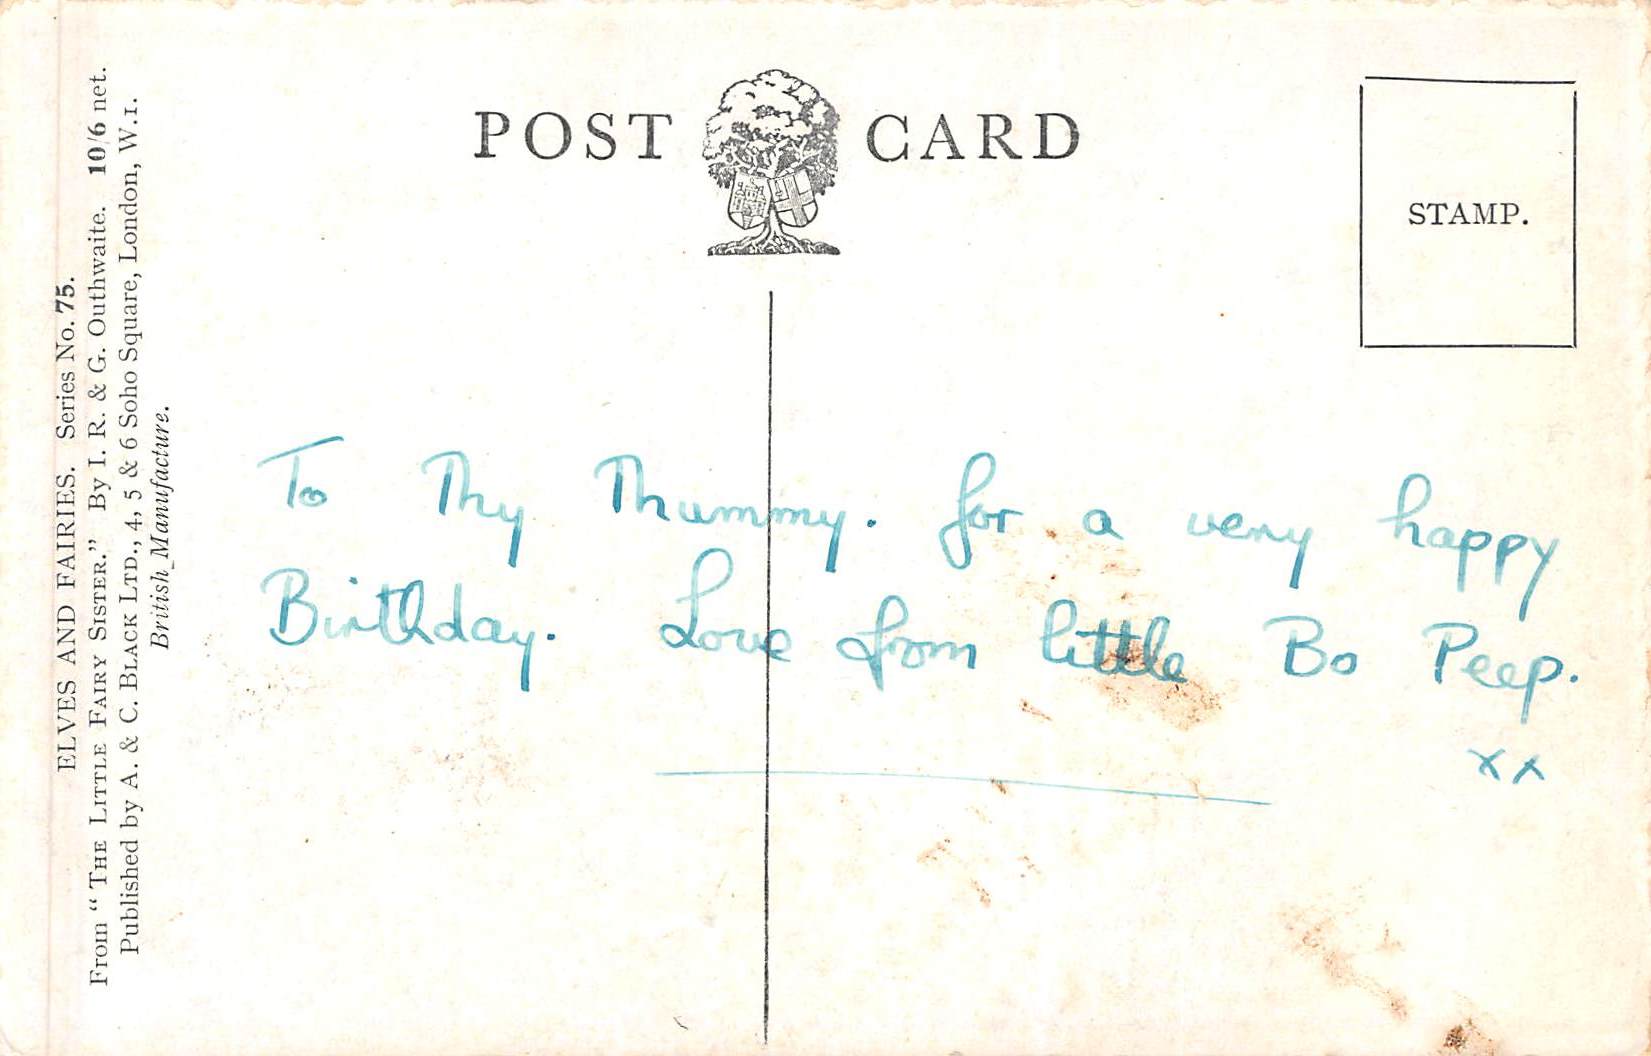 POST CARD
STAMP.
ELVES AND FAIRIES. Series No. 75.
From “THE LITTLE FAIRY SISTER.” By I. R. & G. Outhwaite. 10/6 net.
Published by A. & C. BLACK LTD., 4, 5 & 6 Soho Square, London, W.1.
British Manufacture.
To My Mummy. for a very happy
Birthday. Love from little Bo Peep.
xx